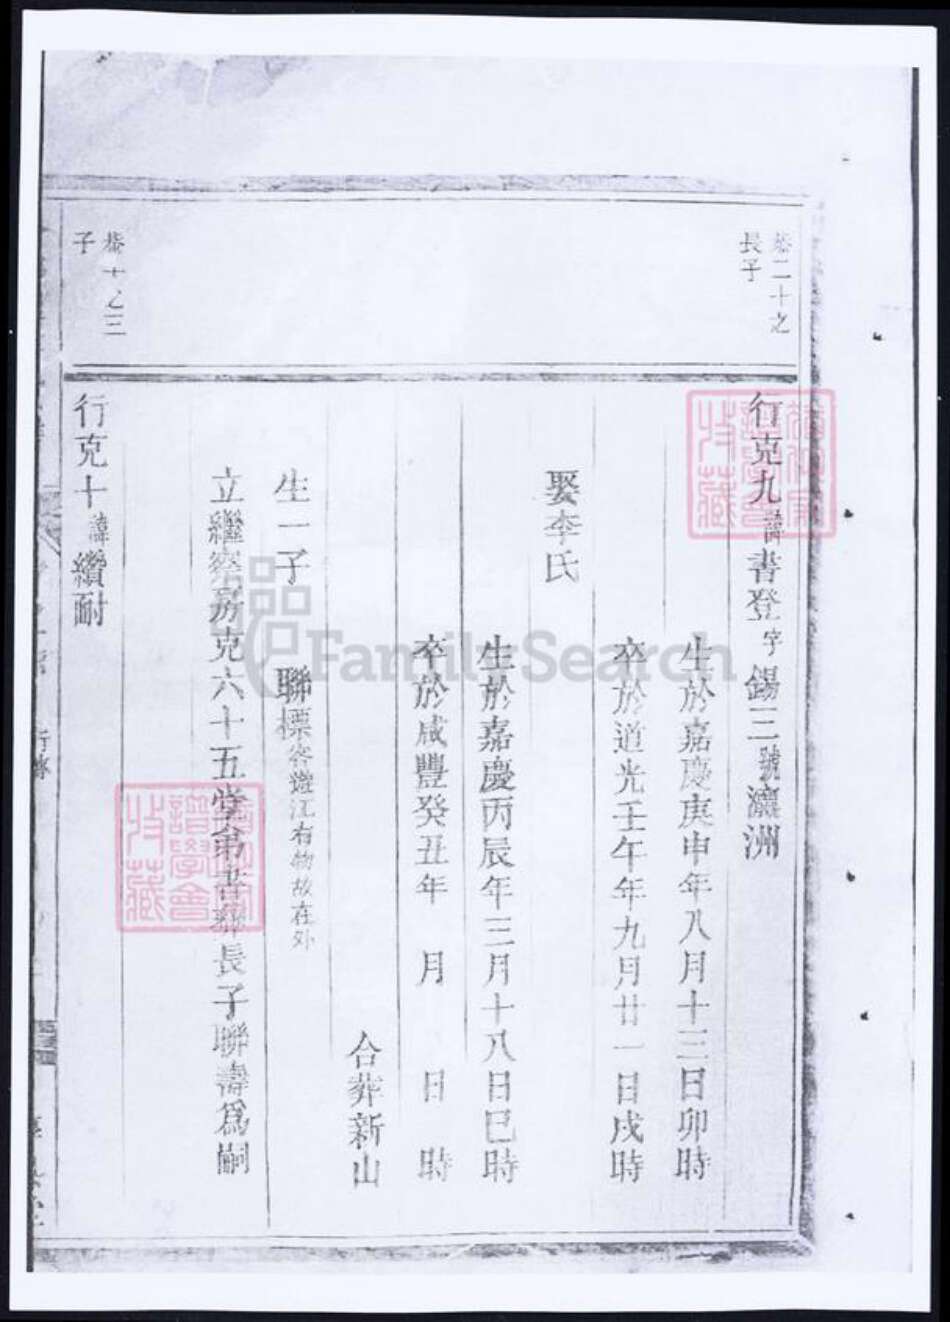 恭二十之
長子
行克九諱書登字錫三號瀛洲
生於嘉慶庚申年八月十三日卯時
卒於道光壬午年九月廿一日戌時
娶李氏
生於嘉慶丙辰年三月十八日巳時
卒於咸豐癸丑年 月 日 時
合葬新山
生一子 聯標客遊江右物故在外
立繼察房克六十五堂弟書 長子聯壽爲嗣
恭十之三
子
行克十諱續耐
FamilySearch